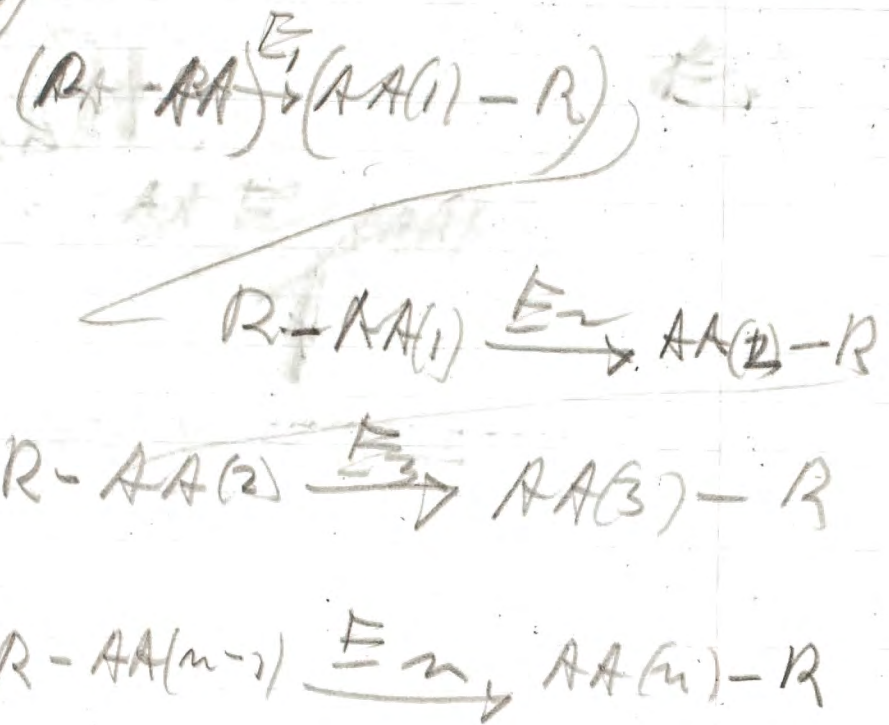 (R - AA) E1→ (AA(1) - R)
R - AA(1) E2→ AA(2) - R
R - AA(2) E3→ AA(3) - R
R - AA(n-1) En→ AA(n) - R